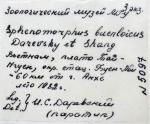 Зоологический музей МГУ 3 экз.
Sphenomorphus buenloicus
Darevsky et
Вьетнам, плато Тай-
Нгуен, окр. стац. Буен-Лои
60 км от г. Анкe
1982 г.
Leg. И.С. Даревский
Det. (паратип)
N 5057